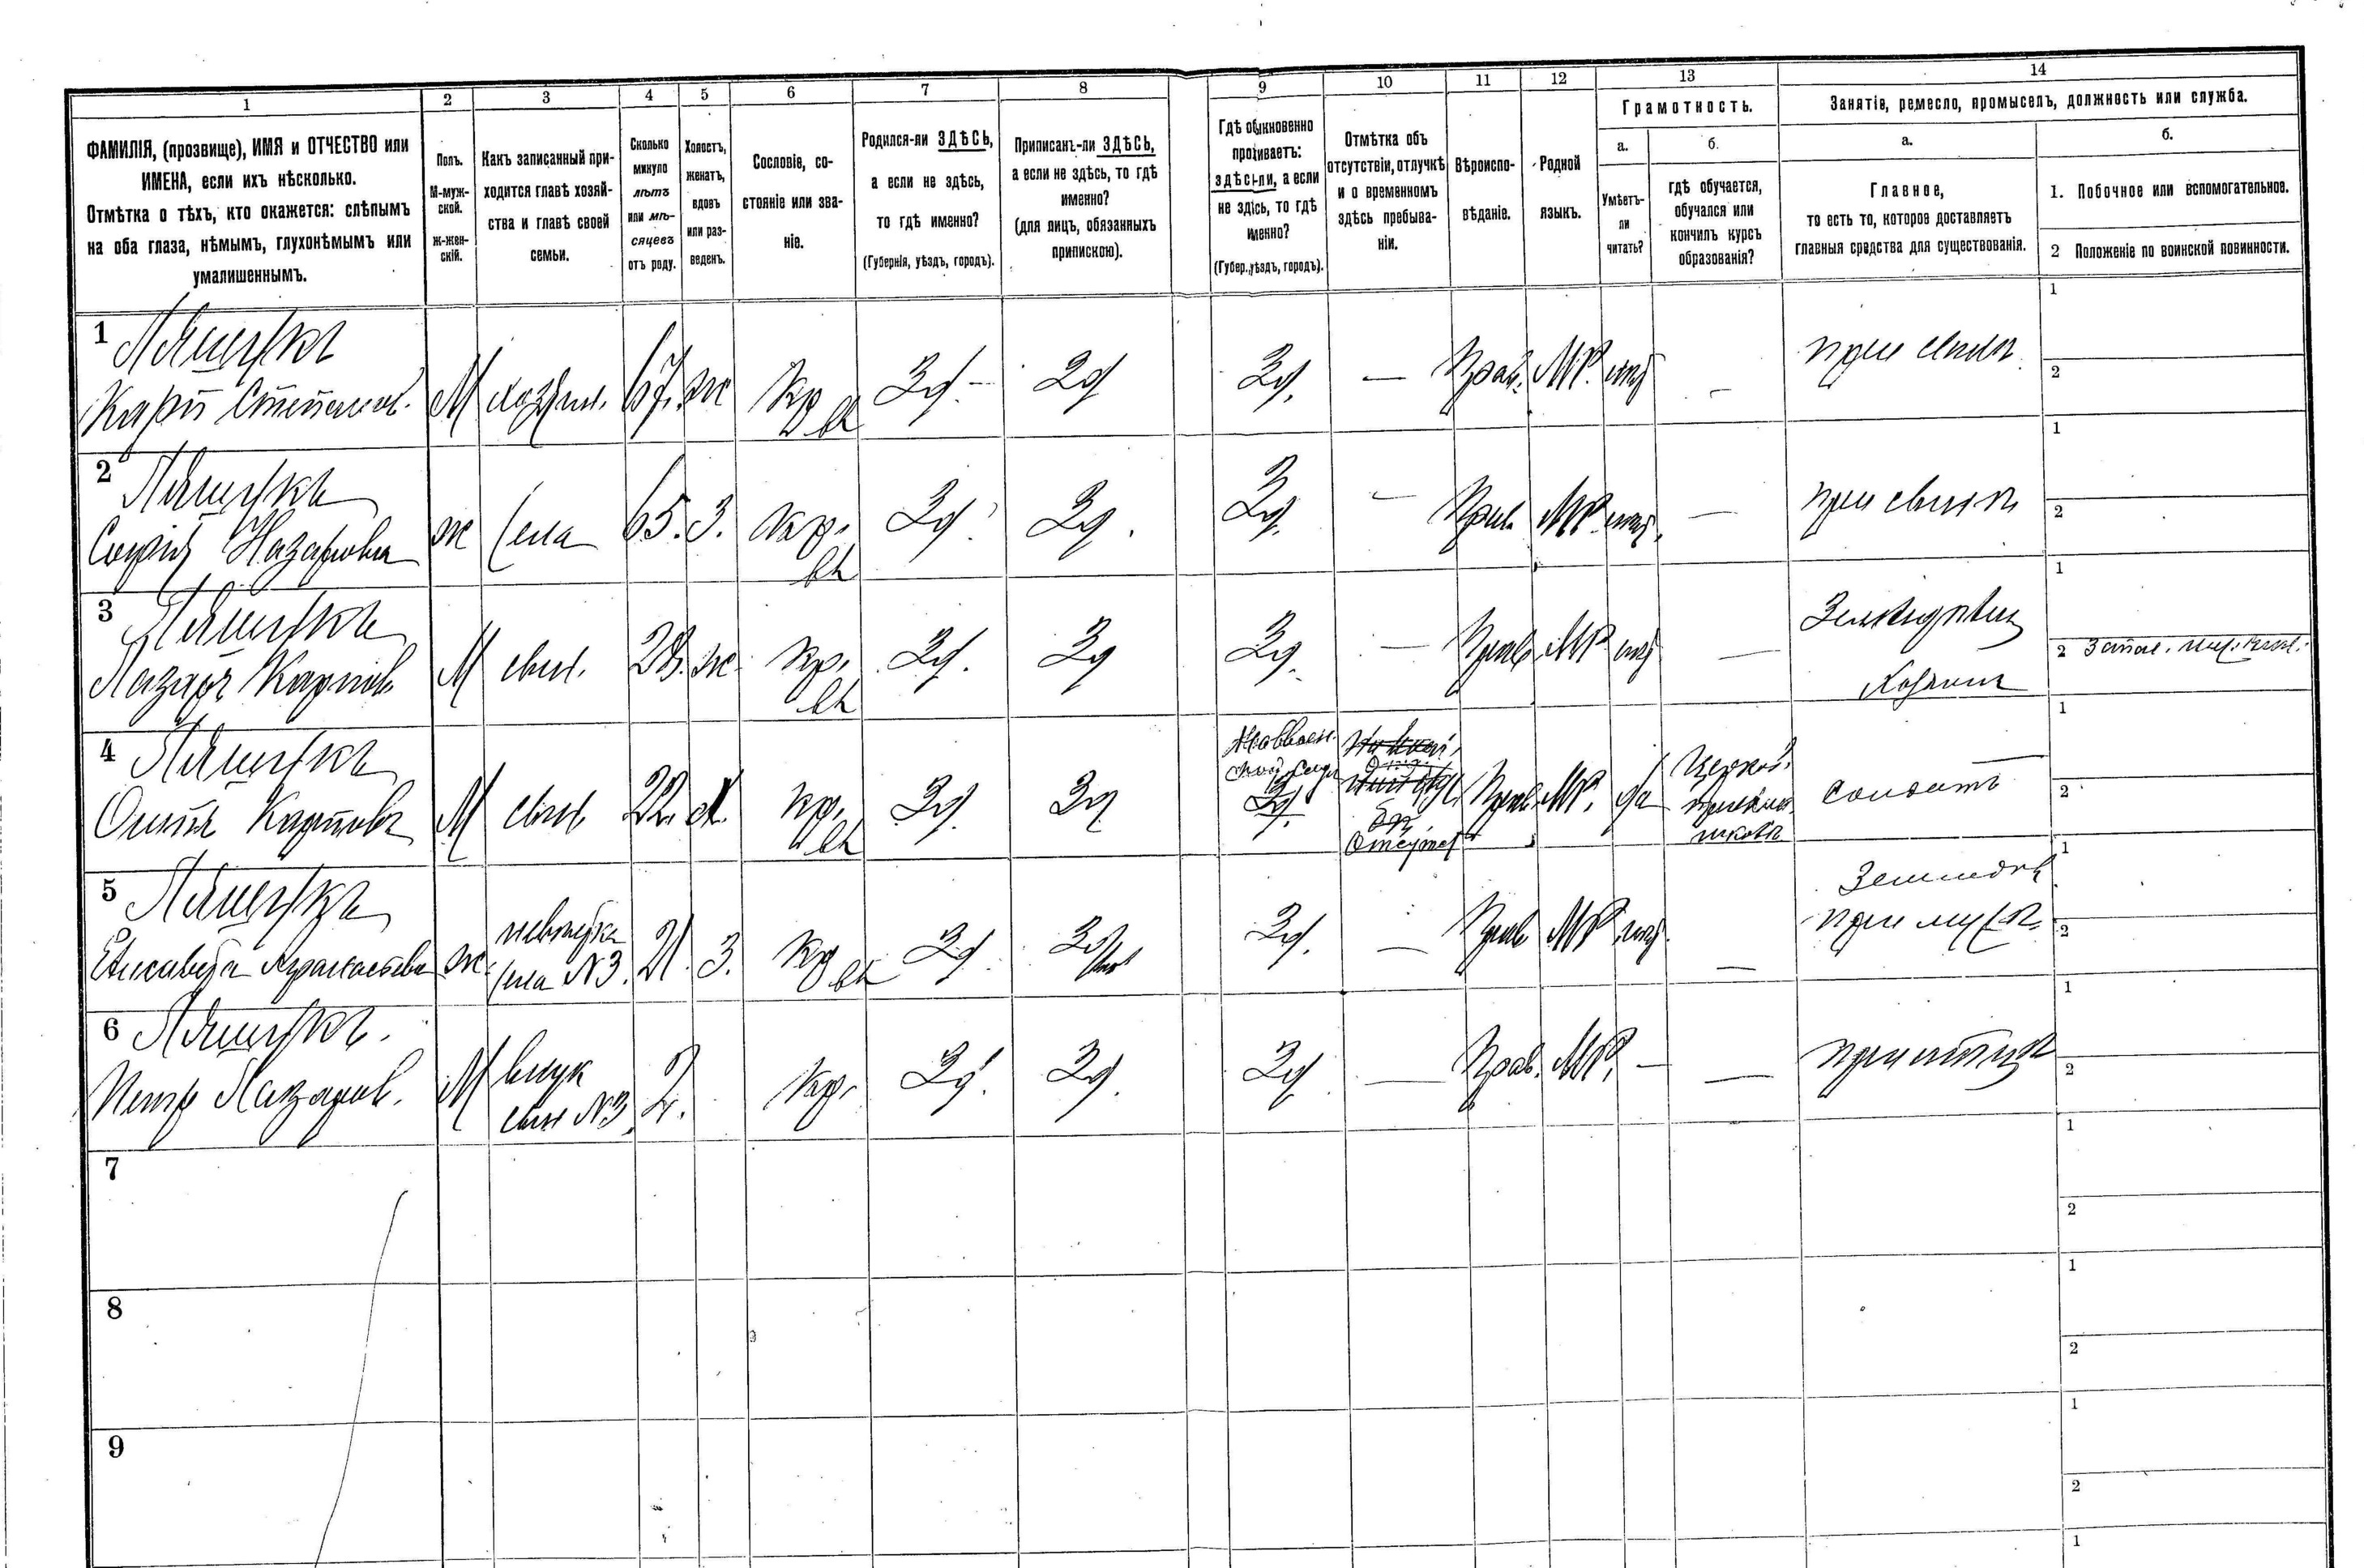 1 2 3 4 5 6 7 8 9 10 11 12 13 14
ФАМИЛІЯ, (прозвище), ИМЯ и ОТЧЕСТВО или
ИМЕНА, если ихъ нѣсколько.
Отмѣтка о тѣхъ, кто окажется: слѣпымъ
на оба глаза, нѣмымъ, глухонѣмымъ или
умалишеннымъ.
Полъ.
М-муж-
ской.
Ж-жен-
скій.
Какъ записанный при-
ходится главѣ хозяй-
ства и главѣ своей
семьи.
Сколько
минуло
лѣтъ
или мѣ-
сяцевъ
отъ роду.
Холостъ,
женатъ,
вдовъ
или раз-
веденъ.
Сословіе, со-
стояніе или зва-
ніе.
Родился-ли ЗДѢСЬ,
а если не здѣсь,
то гдѣ именно?
(Губернія, уѣздъ, городъ).
Приписанъ-ли ЗДѢСЬ,
а если не здѣсь, то гдѣ
именно?
(для лицъ, обязанныхъ
припискою).
Гдѣ обыкновенно
проживаетъ:
здѣсь-ли, а если
не здѣсь, то гдѣ
именно?
(Губер.,уѣздъ, городъ).
Отмѣтка объ
отсутствіи, отлучкѣ
и о временномъ
здѣсь пребыва-
ніи.
Вѣроиспо-
вѣданіе.
Родной
языкъ.
Грамотность.
а.
Умѣетъ-
ли
читать?
б.
гдѣ обучается,
обучался или
кончилъ курсъ
образованія?
Занятіе, ремесло, промыселъ, должность или служба.
а.
Главное,
то есть то, которое доставляетъ
главныя средства для существованія.
б.
1. Побочное или вспомогательное.
2 Положеніе по воинской повинности.
1
Карпъ Степанов. М хозяин. 67. ж Кр Зд. Зд Зд. — Прав. МР. нѣт — при сынѣ
1
2
2
Софія Назаровна ж жена 65. З. кр. Зд. Зд. Зд. — Прав. МР. нѣт. — при сынѣ
1
2
3
Лазарь Карпов М сын. 28. ж кр. Зд. Зд Зд. — Прав. МР нѣт — Земледѣлец
Хозяинъ
1
2 Запас.
4
М сынъ 22. х. кр. Зд. Зд Зд. Отсутст Прав. МР. да солдатъ
1
2
5
Елисавета Афанасьева ж. невѣстка
жена №3. 21. З. Кр Зд. Зд Зд. — Прав МР нѣт. — Земледѣл
при мужѣ
1
2
6
Петр Лазарев. М внук
сын №3. 2. Кр. Зд. Зд. Зд — Прав. МР. — — при отцѣ
1
2
7
1
2
8
1
2
9
1
2
1